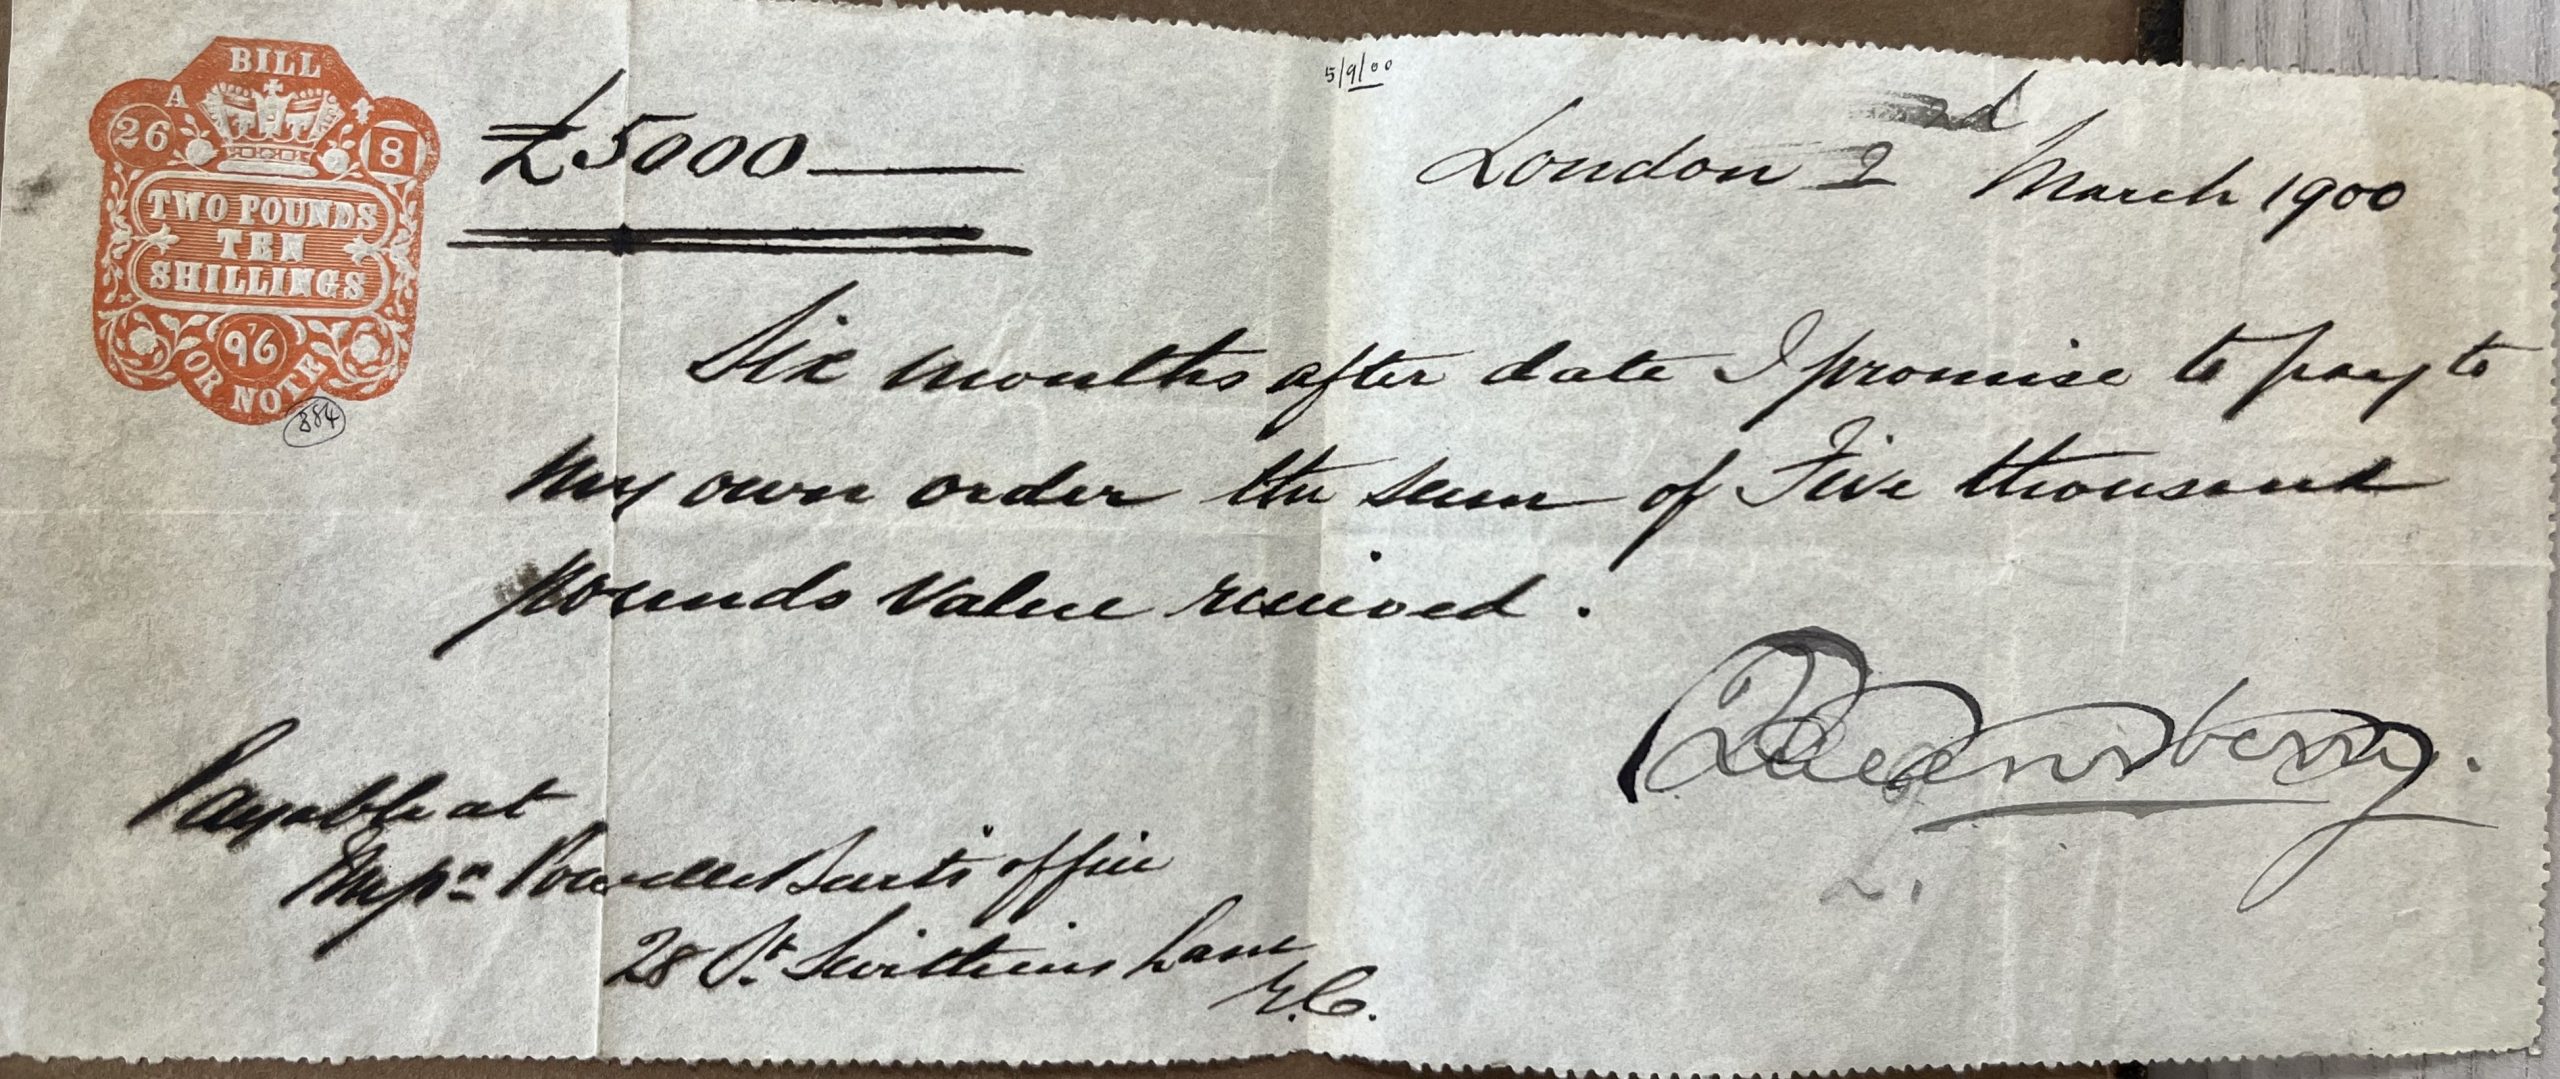 BILL
A
26
8
TWO POUNDS
TEN
SHILLINGS
7
96
OR NOTE
884
5/9/00
£5000
London 2nd March 1900
Six months after date I promise to pay to
my own order the sum of Five thousand
pounds value received.
Queensberry.
2.
Payable at
office
28 St. Swithins Lane
E.C.